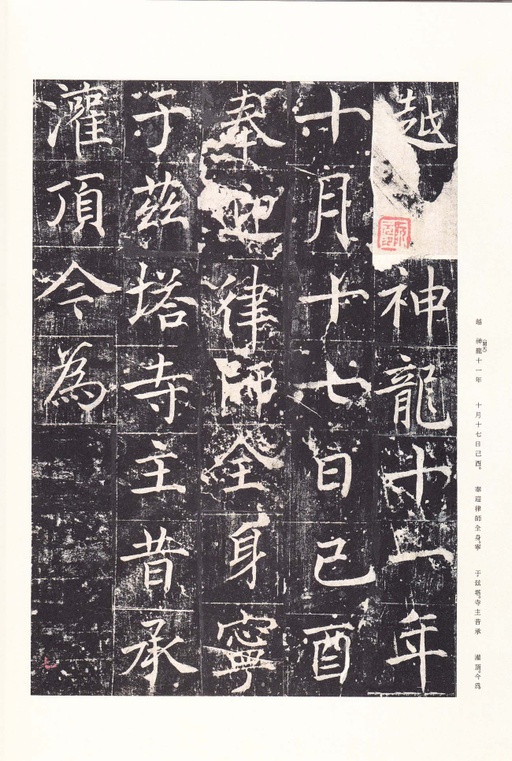 越神龍十一年
十月十七日己酉
奉迎律師全身寧
于兹塔寺主昔承
灌頂今為
越 神龍十一年 十月十七日己酉。 奉迎律師全身寧 于兹塔。寺主昔承 灌頂。今爲